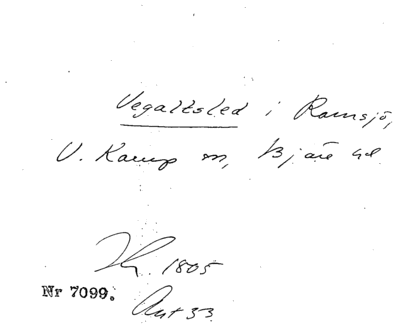 Vegaltsled i Ramsjö,
V. Karup sn, Bjäre hd
Th. 1805
Nr 7099.
Ant 53